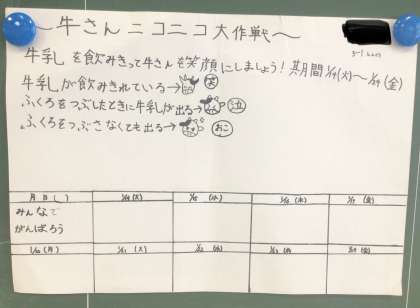 ～牛さんニコニコ大作戦～
牛乳を飲みきって牛さんを笑顔にしましょう！期間1/14(火)～1/24(金)
牛乳が飲みきれている→ 笑
ふくろをつぶしたときに牛乳が出る→ 泣
ふくろをつぶさなくても出る→ おこ
月日( ) 1/14(火) 1/15(水) 1/16(木) 1/17(金)
みんなで
がんばろう
1/20(月) 1/21(火) 1/22(水) 1/23(木) 1/24(金)